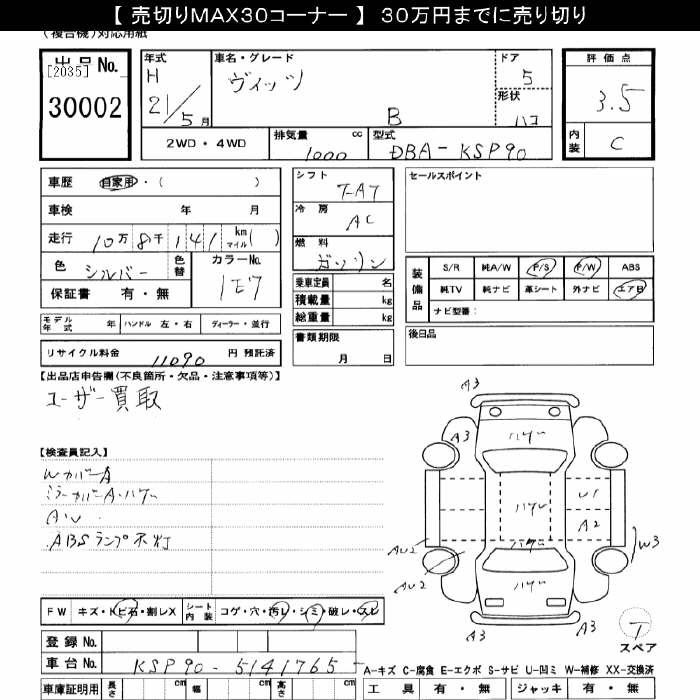 【 売切りMAX30コーナー 】 30万円までに売り切り
(複合機)対応用紙
出品No.
[2035]
30002
年式
H
21/5月
車名・グレード
ヴィッツ
B
ドア
5
形状
ハコ
評価点
3.5
内装
C
2WD・4WD
排気量 cc
1000
型式
DBA-KSP90
車歴 自家用・( )
車検 年 月
走行 10万8千141 km マイル( )
色 シルバー
色替
カラーNo.
1E7
保証書 有・無
シフト
FAT
冷房
AC
燃料
ガソリン
乗車定員 名
積載量 kg
総重量 kg
書類期限
月 日
セールスポイント
装備品
S/R 純A/W P/S P/W ABS
純TV 純ナビ 革シート 外ナビ エアB
ナビ型番:
後日品
モデル年式 年 ハンドル 左・右 ディーラー・並行
リサイクル料金 11090 円 預託済
【出品店申告欄(不良箇所・欠品・注意事項等)】
ユーザー買取
【検査員記入】
WカバーA
ミラーカバーA・ハゲ
A・U
ABSランプ不灯
A3
A3
A3
ハゲ
ハゲ
ハゲ
ハゲ
U1
A2
W3
AU2
AU2
A3
A3
T
スペア
FW キズ・トビ石・割レX
シート内装 コゲ・穴・汚レ・シミ・破レ・スレ
登録No.
車台No. KSP90-5141765
A-キズ C-腐食 E-エクボ S-サビ U-凹ミ W-補修 XX-交換済
車庫証明用 長さ cm 幅 cm 高さ cm
工具 有・無 ジャッキ 有・無